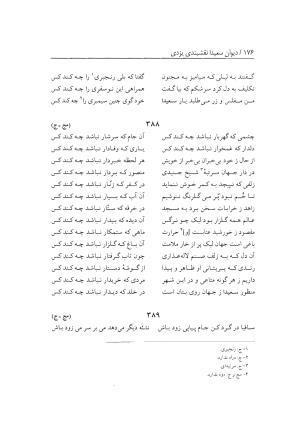 ۱۷۶ / دیوان سعیدا نقشبندی یزدی
گفتند به لیلی که میامیز به مجنون گفتا که بلی رنجبری۱ را چه کند کس
تکلیف به دل کرد سرشکم که بیا گفت همراهی این نوسفری را چه کند کس
من مفلس و زر می‌طلبد یار سعیدا خودگوی چنین سیمبری را چه کند کس
۳۸۸
(مج - ج)
چشمی که گهربار نباشد چه کند کس آن جام که سرشار نباشد چه کند کس
دلدار که غمخوار نباشد چه کند کس یاری که وفادار نباشد چه کند کس
از حال ز خود بی‌خبران بی‌خبر از خویش هر لحظه خبردار نباشد چه کند کس
در دار جهان مرتبهٔ شیخ جنیدی منصور که بردار نباشد چه کند کس
زلفی که نپیچد به کمر خوش ننماید در کفر که زنّار نباشد چه کند کس
تا خُم نبود پُر می گلرنگ ننوشیم آن آب که بسیار نباشد چه کند کس
زاهد ز خرابات سخن برد به مسجد در خرقه که ستّار نباشد چه کند کس
عالم همه گلزار بود لیک چو نرگس آن دیده که بیدار نباشد چه کند کس
مقصود ز خورشید عذابست [و]۲ حرارت ماهی که ستمکار نباشد چه کند کس
باغی است جهان لیک پر از خار ملامت آن باغ که گلزار نباشد چه کند کس
آن دل که به زلف صنم لاله‌عذاری چون تاب گرفتار نباشد چه کند کس
رندی که پریشانی او ظاهر و پیدا از گوشهٔ دستار نباشد چه کند کس
داریم ز هر گونه متاعی و در این شهر مردی که خریدار نباشد چه کند کس
منظور سعیدا ز جهان روی بتان است در خلد که دیدار نباشد چه کند کس
۳۸۹
(مج - ج)
ساقیا در گردش کن جام پیاپی زود باش نشئه دیگر می‌دهد می بر سر می زود باش
۱- ج: رنجبری.
۲- ج: ندارد.